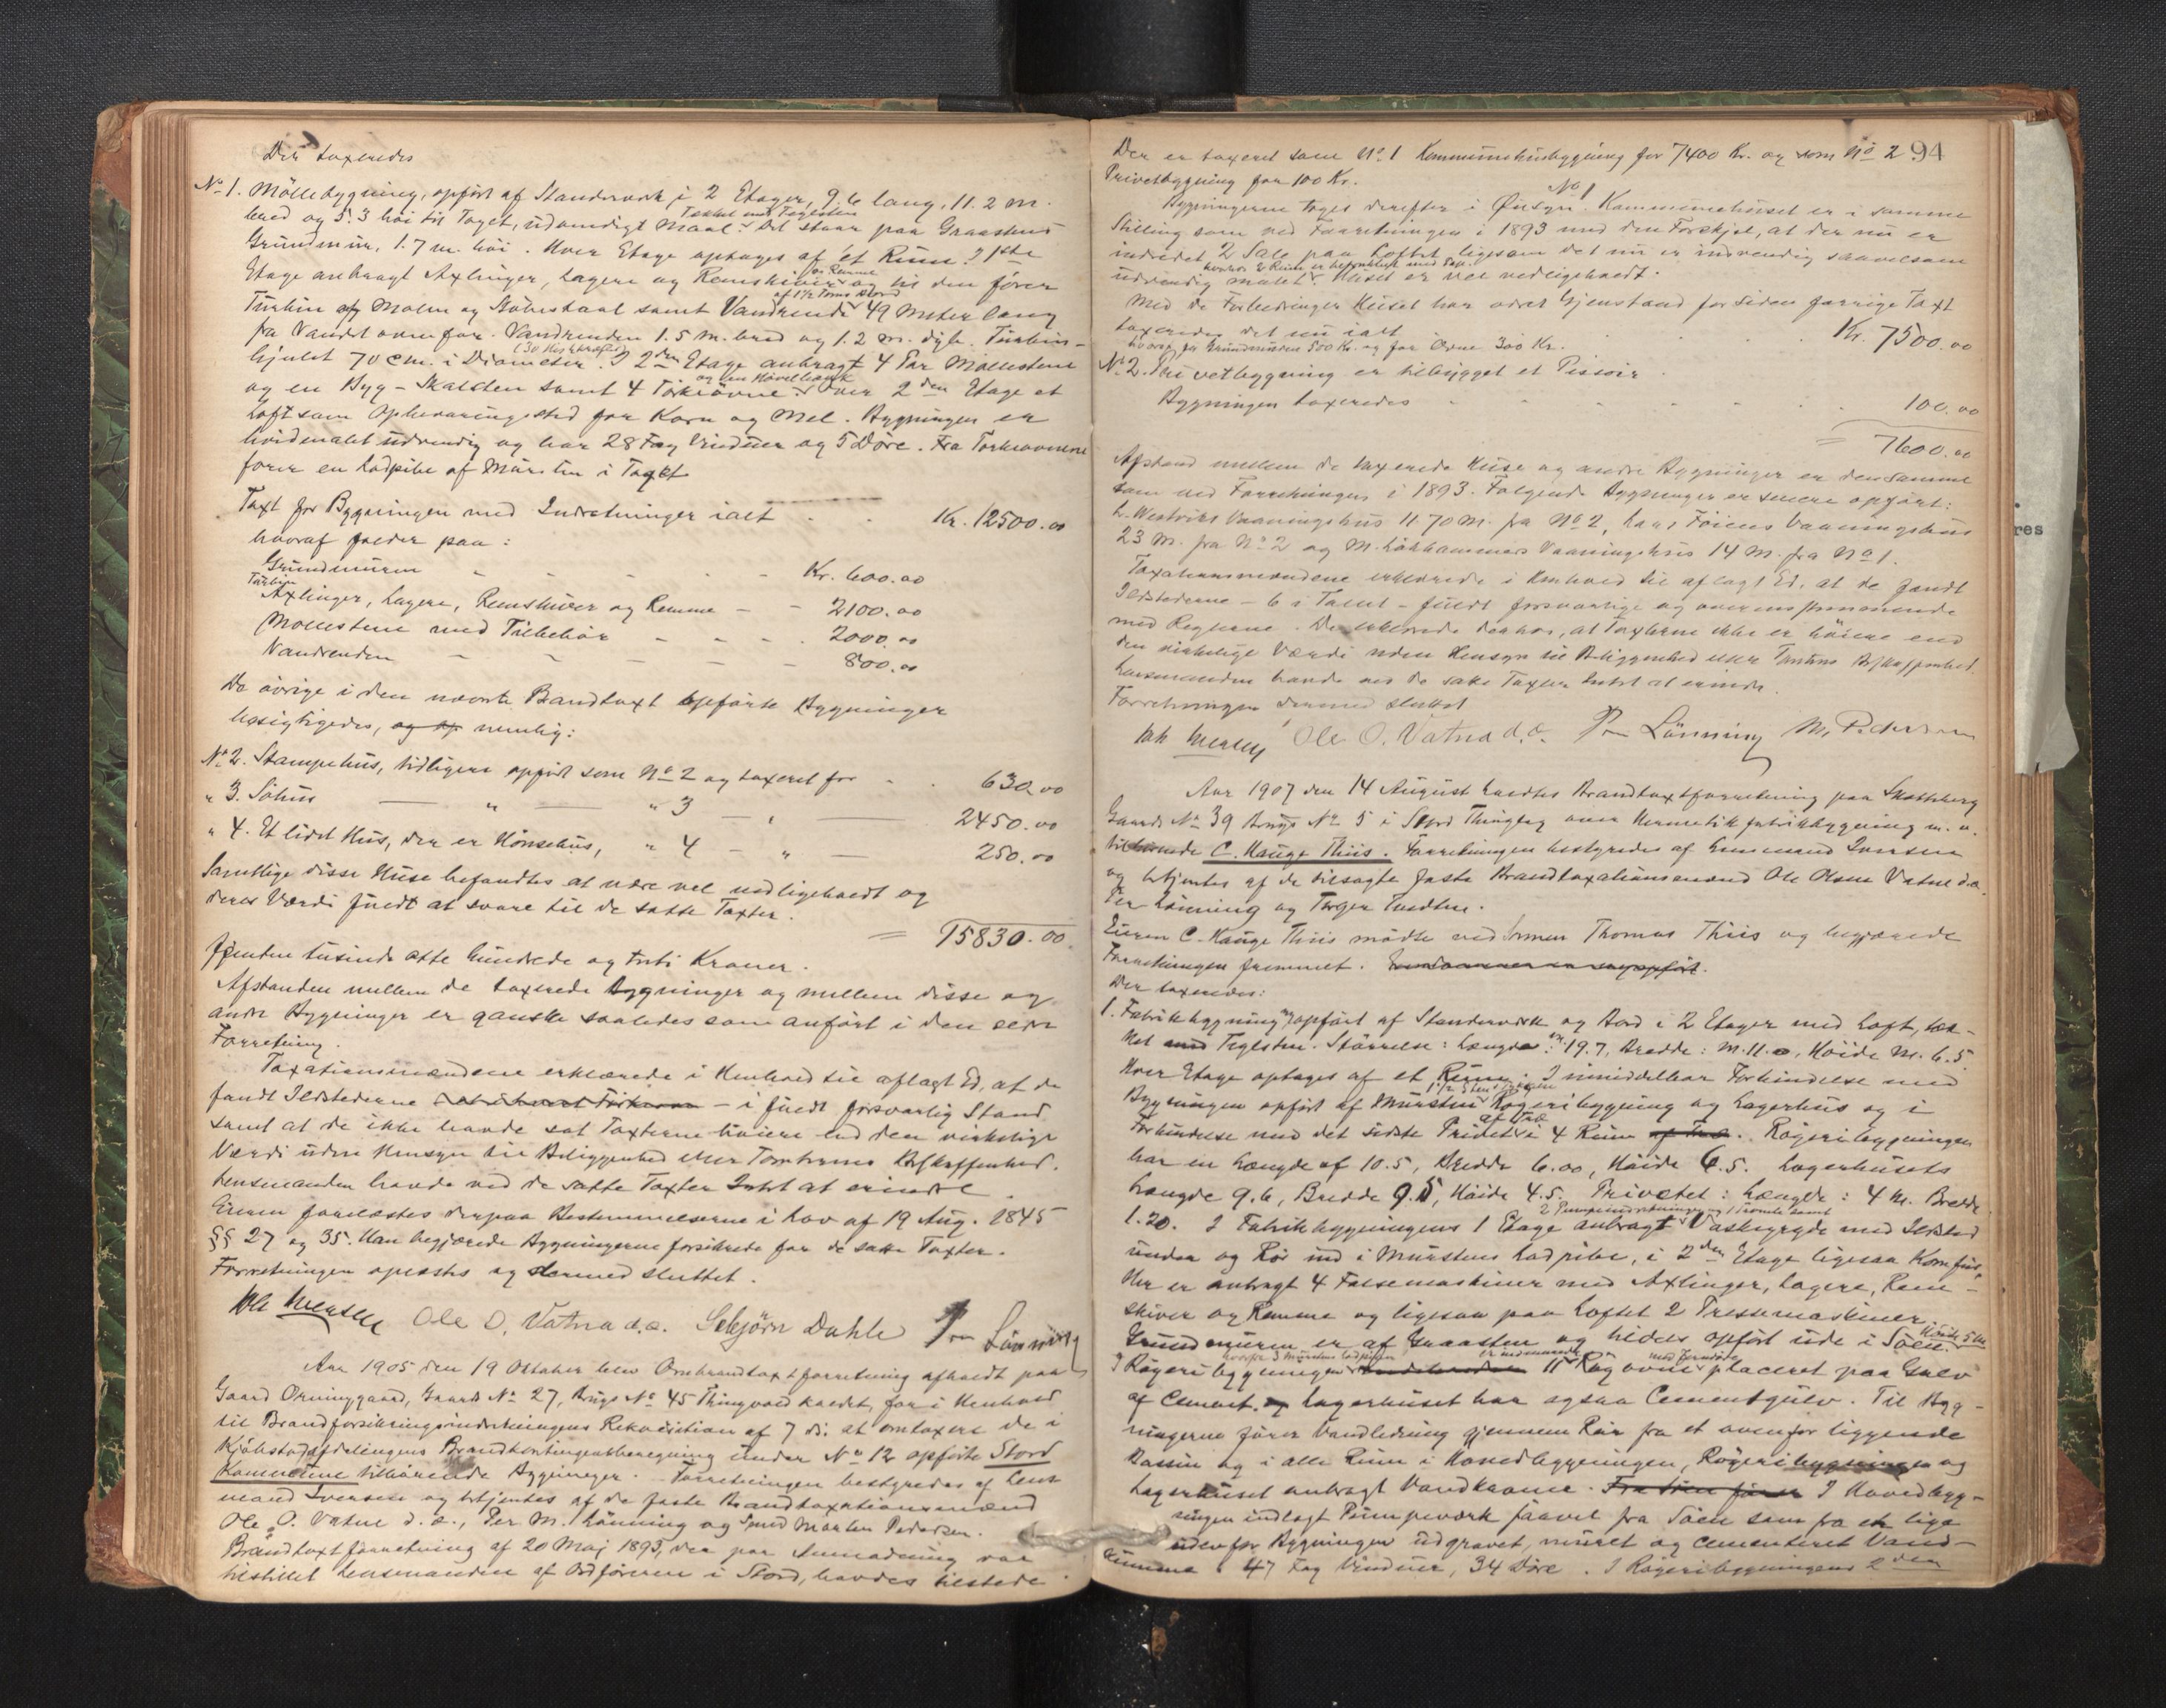 Der taxeredes
No 1. Möllebygning, opfört af Standerverk i 2 Etager, 9.6 lang, 11.2 m.
bred og 5.3 höi til Taget, udvendigt Maal. Tækket med Teglsten Det staar paa Graastens
Grundmur, 1.7 m. höi. Hver Etage optages af ét Rum. I 1ste
Etage anbragt Axlinger, Lagere og Remskiver og Remme og til den förer
Turbin af Malm og Stöbestaal samt Vandrende af 1 1/2 Toms Bord 49 Meter lang
fra Vandet ovenfor. Vandrenden 1.5 m. bred og 1.2 m. dyb. Turbin-
hjulet 70 cm. i Diameter (30 Hestekræfter). I 2den Etage anbragt 4 Par Möllestene
og en Byg-Skalden samt 4 Törkeovne og en Hövelbænk. Over 2den Etage et
Loft som Opbevaringssted for Korn og Mel. Bygningen er
hvidmalet udvendig og har 28 Fag Vinduer og 5 Döre. Fra Törkeovnene
förer en Ladpibe af Mursten i Taget
Taxt for Bygningen med Indretninger ialt . . Kr. 12500.00
hvoraf falder paa:
Grundmuren - - - - - Kr. 600.00
Turbin
Axlinger, Lagere, Remskiver og Remme - - 2100.00
Möllestene med Tilbehör - - - - 2000.00
Vandrenden - - - - - 800.00
De övrige i den nævnte Brandtaxt opförte Bygninger
besigtigedes, og op nemlig:
No 2. Stampehus, tidligere opfört som No 2 og taxeret for - . 630.00
" 3. Söhus — " — " 3 — " — 2450.00
" 4. Et lidet Hus, der er Hönsehus, " 4 - " — 250.00
Samtlige disse Huse befandtes at være vel vedligeholdt og
deres Værdi fuldt at svare til de satte Taxter.
= 15830.00
femten tusinde otte hundrede og treti Kroner.
Afstanden mellem de taxerede Bygninger og mellem disse og
andre Bygninger er ganske saaledes som anfört i den
Forretning.
Taxationsmændene erklærede i Henhold til aflagt Ed, at de
fandt Ildstederne i fuldt forsvarlig Stand
samt at de ikke havde sat Taxterne höiere end den virkelige
Værdi uden Hensyn til Beliggenhed eller Tomternes Beskaffenhed.
Lensmanden havde ved de satte Taxter Intet at erindre.
Eieren forelæstes derpaa Bestemmelserne i Lov af 19 Aug. 1845
§§ 27 og 35. Han begjærede Bygningerne forsikrede for de satte Taxter.
Forretningen oplæstes og dermed sluttet.
Ole O. Vatna d.æ. Sebjörn Dahle Per Lönning
Aar 1905 den 19 Oktober blev Ombrandtaxtforretning afholdt paa
Gaard Orninggaard, Gaards No 27, Brugs No 45 Thingvold kaldet, for i Henhold
til Brandforsikringsindretningens Rekvisition af 7 ds. at omtaxere de i
Kjöbstadafdelingens Brandkontingentberegning under No 12 opförte Stord
Kommune tilhörende Bygninger. Forretningen bestyredes af Lens
mand Iversen og betjentes af de faste Brandtaxationsmænd
Ole O. Vatne d.æ., Per M. Lönning og Smed Morten Pedersen.
Brandtaxtforretning af 20 Maj 1893, der paa Anmodning var
tilstillet Lensmanden af Ordföreren i Stord, havdes tilstede.
94
Der er taxeret som No 1 Kommunehusbygning for 7400 Kr. og som No 2
Privetbygning for 100 Kr.
Bygningerne toges derefter i Öiesyn. No 1 Kommunehuset er i samme
Stilling som ved Forretningen i 1893 med den Forskjel, at der nu er
indredet 2 Sale paa Loftet ligesom det nu er indvendig saavelsom
udvendig malet. Huset er vel vedligeholdt.
Med de Forbedringer Huset har været Gjenstand for siden forrige Taxt
taxeredes det nu ialt . . . . Kr. 7500.00
hvoraf for Grundmuren 500 Kr. og for Ovne 300 Kr.
No 2. Privetbygning er tilbygget et Pissoir.
Bygningen taxeredes - - . . . 100.00
= 7600.00
Afstand mellem de taxerede Huse og andre Bygninger er densamme
som ved Forretningen i 1893. Fölgende Bygninger er senere opfört:
L. Westviks Vaaningshus 11.70 M. fra No 2, Lars Föiens Vaaningshus
23 M. fra No 2 og M. Lökhammers Vaaningshus 14 M. fra No 1.
Taxationsmændene erklærede i Henhold til aflagt Ed, at de fandt
Ildstederne - 6 i Tallet - fuldt forsvarlige og overensstemmende
med Reglerne. De erklærede derhos, at Taxterne ikke er höiere end
den virkelige Værdi uden Hensyn til Beliggenhed eller Tomtens Beskaffenhed.
Lensmanden havde ved de satte Taxter Intet at erindre.
Forretningen dermed sluttet
Ole O. Vatna d.æ. Per Lönning M. Pedersen
Aar 1907 den 14 August holdtes Brandtaxtforretning paa Skotteberg
Gaards No 39 Brugs No 5 i Stord Thinglag over Hermetikfabrikbygning m.v.
tilhörende C. Hauge Thiis. Forretningen bestyredes af Lensmand Iversen
og betjentes af de tilsagte faste Brandtaxationsmænd Ole Olsen Vatne d.æ.
Per Lönning og Torger Tvedten.
Eieren C. Hauge Thiis mödte ved Thomas Thiis og begjærede
Forretningen fremmet.
Der taxeredes:
1. Fabrikbygning opfört af Standerverk og Bord i 2 Etager med Loft, tæk-
ket med Teglsten. Störrelse: Længde: m. 19.7, Bredde: M. 11.0, Höide M. 6.5
Hver Etage optages af et Rum. I umiddelbar Forbindelse med
Bygningen opfört af Mursten 1 1/2 Sten Rögeribygning og Lagerhus og i
Forbindelse med det sidste Privetet af Træ i 4 Rum af Træ. Rögeribygningen
har en Længde af 10.5, Bredde 6.00, Höide 6.5. Lagerhusets
Længde 9.6, Bredde 9.5, Höide 4.5. Privetet: Længde: 4 M. Bredde
1.20. I Fabrikbygningens 1 Etage anbragt Vaskegryde med Ildsted
under og Rör ind i Murstens Ladpibe, i 2den Etage ligesaa Komfur,
Her er anbragt 4 Falsemaskiner med Axlinger, Lagere, Rem-
skiver og Remme og ligesaa paa Loftet 2 Pressemaskiner.
Grundmuren er af Graasten og heldes opfört ude i Söen. Höide 5 M.
I Rögeribygningen hvorfra 3 Murstens Ladpiber er indmuret 11 Rögovne med Jerndöre placeret paa Gulv
af Cement. og Lagerhuset har ogsaa Cementgulv. Til Byg-
ningerne förer Vandledning gjennem Rör fra et ovenfor liggende
Bassin og i alle Rum i Hovedbygningen, Rögeribygningen og
Lagerhuset anbragt Vandkrane. I Hovedbyg-
ningen indlagt Pumpeværk saavel fra Söen som fra en lige
udenfor Bygningen udgravet, muret og cementeret Vand-
kumme. 47 Fag Vinduer, 34 Döre. I Rögeribygningens 2den
res